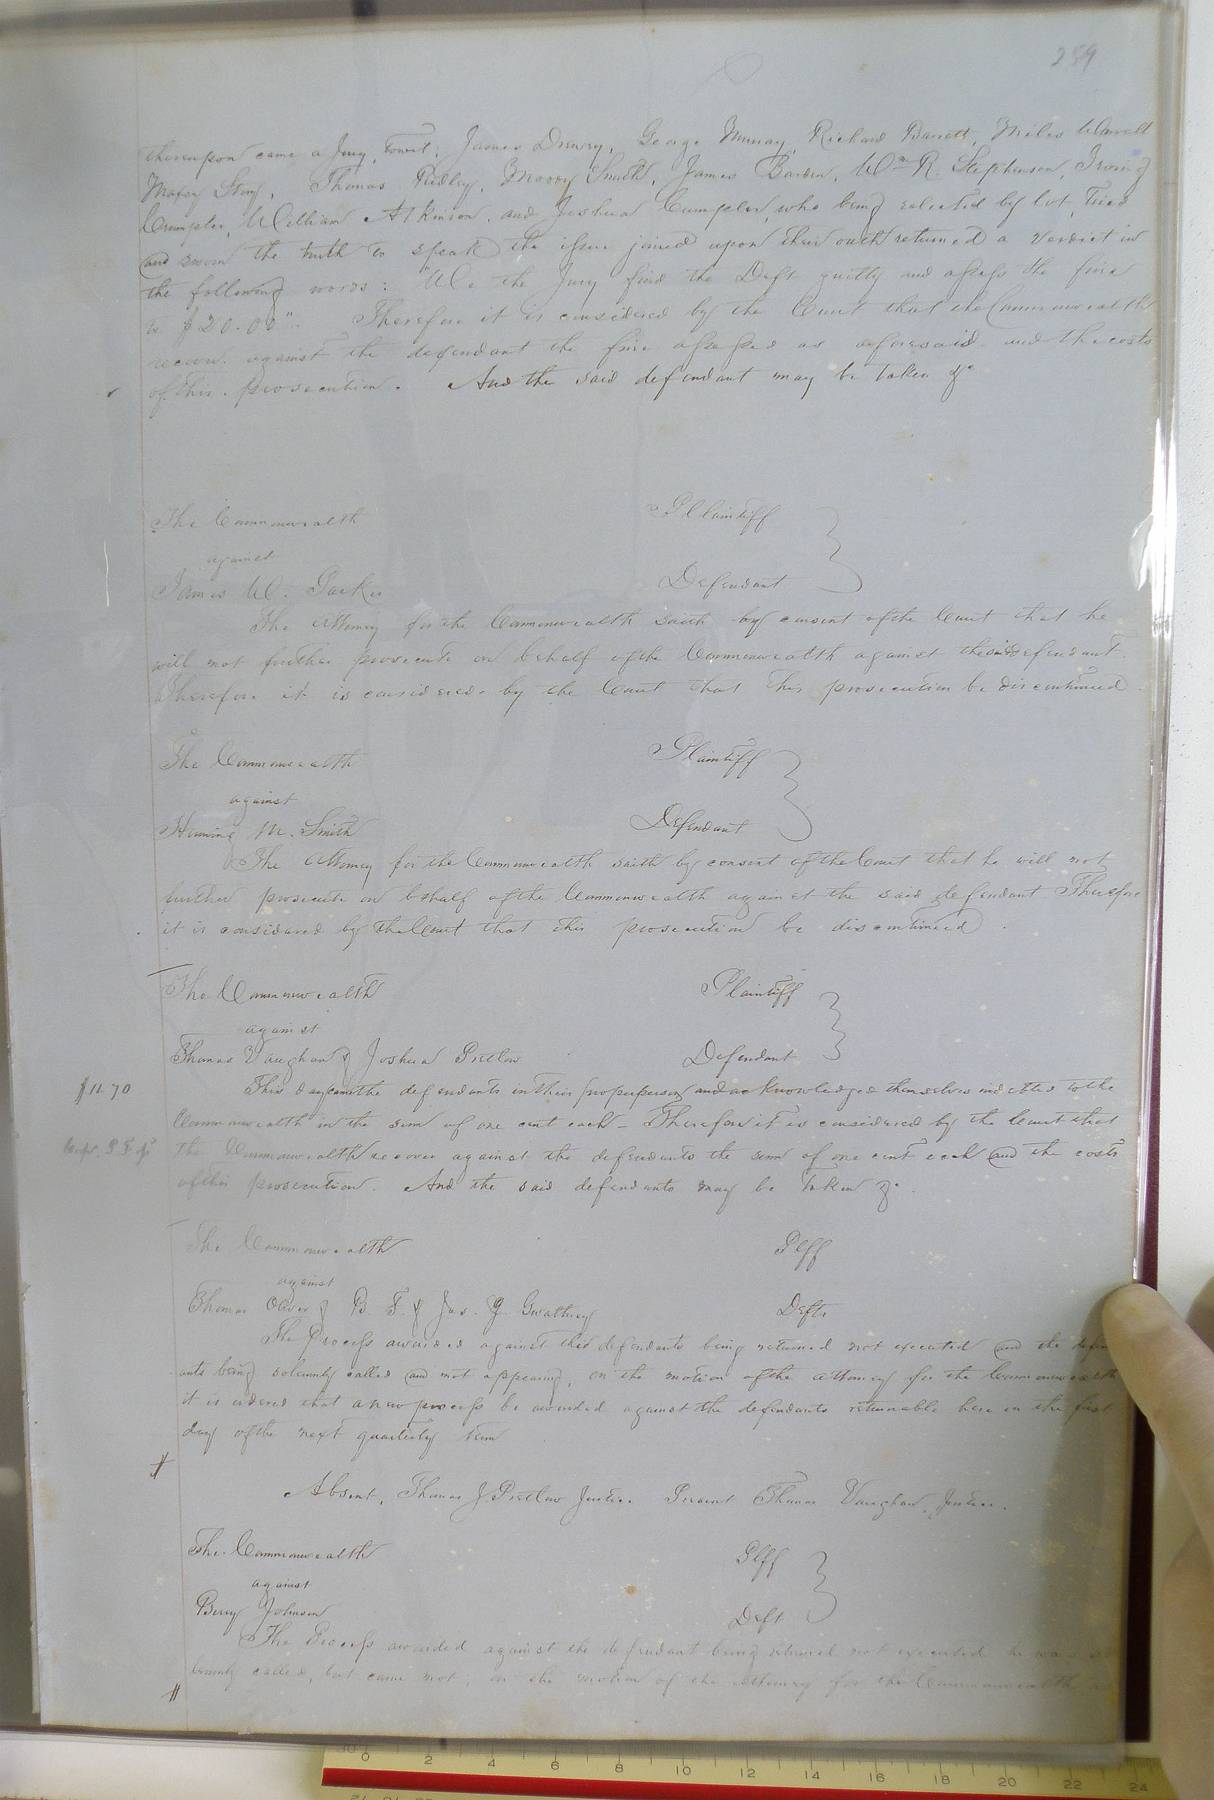 259
thereupon came a Jury, towit: James Drewry, George Murray, Richard Barrett, Miles
Story, Thomas Ridley, Moody Smith, James Barden, Wm R. Stephenson, Irving
Crumpler, William Atkinson, and Joshua Crumpler, who being selected by lot, tried
and sworn the truth to speak the issue joined upon their oath returned a verdict in
the following words: "We the Jury find the Deft guilty and assess the fine
to $20.00". Therefore it is considered by the Court that the Commonwealth
recover against the defendant the fine assessed as aforesaid and the costs
of this prosecution. And the said defendant may be taken &c
The Commonwealth Pllaintiff
against
James W. Parker Defendant
The Attorney for the Commonwealth saith by consent of the Court that he
will not further prosecute on behalf of the Commonwealth against the said defendant.
Therefore it is considered by the Court that this prosecution be discontinued.
The Commonwealth Plaintiff
against
M. Smith Defendant
The Attorney for the Commonwealth saith by consent of the Court that he will not
further prosecute on behalf of the Commonwealth against the said defendant Therefore
it is considered by the Court that this prosecution be discontinued.
The Commonwealth Plaintiff
against
Thomas Vaughan & Joshua Pretlow Defendant
$11.70 This day came the defendants in their proper person and acknowledged themselves indebted to the
Commonwealth in the sum of one cent each - Therefore it is considered by the Court that
the Commonwealth recover against the defendants the sum of one cent each and the costs
of this prosecution. And the said defendants may be taken &c.
The Commonwealth Plff
against
Thomas Oliver & B. F. & Jas. G. Gwathney Defts
The Process awarded against the defendants being returned not executed and the defend
ants being solemnly called and not appearing, on the motion of the attorney for the Commonwealth
it is ordered that a new process be awarded against the defendants returnable here on the first
day of the next quarterly term
Absent, Thomas J Pretlow Justice. Present Thomas Vaughan, Justice.
The Commonwealth Plff
against
Berry Johnson Deft
The Process awarded against the defendant being returned not executed he was so
lemnly called, but came not, on the motion of the attorney for the Commonwealth
0 2 4 6 8 10 12 14 16 18 20 22 24